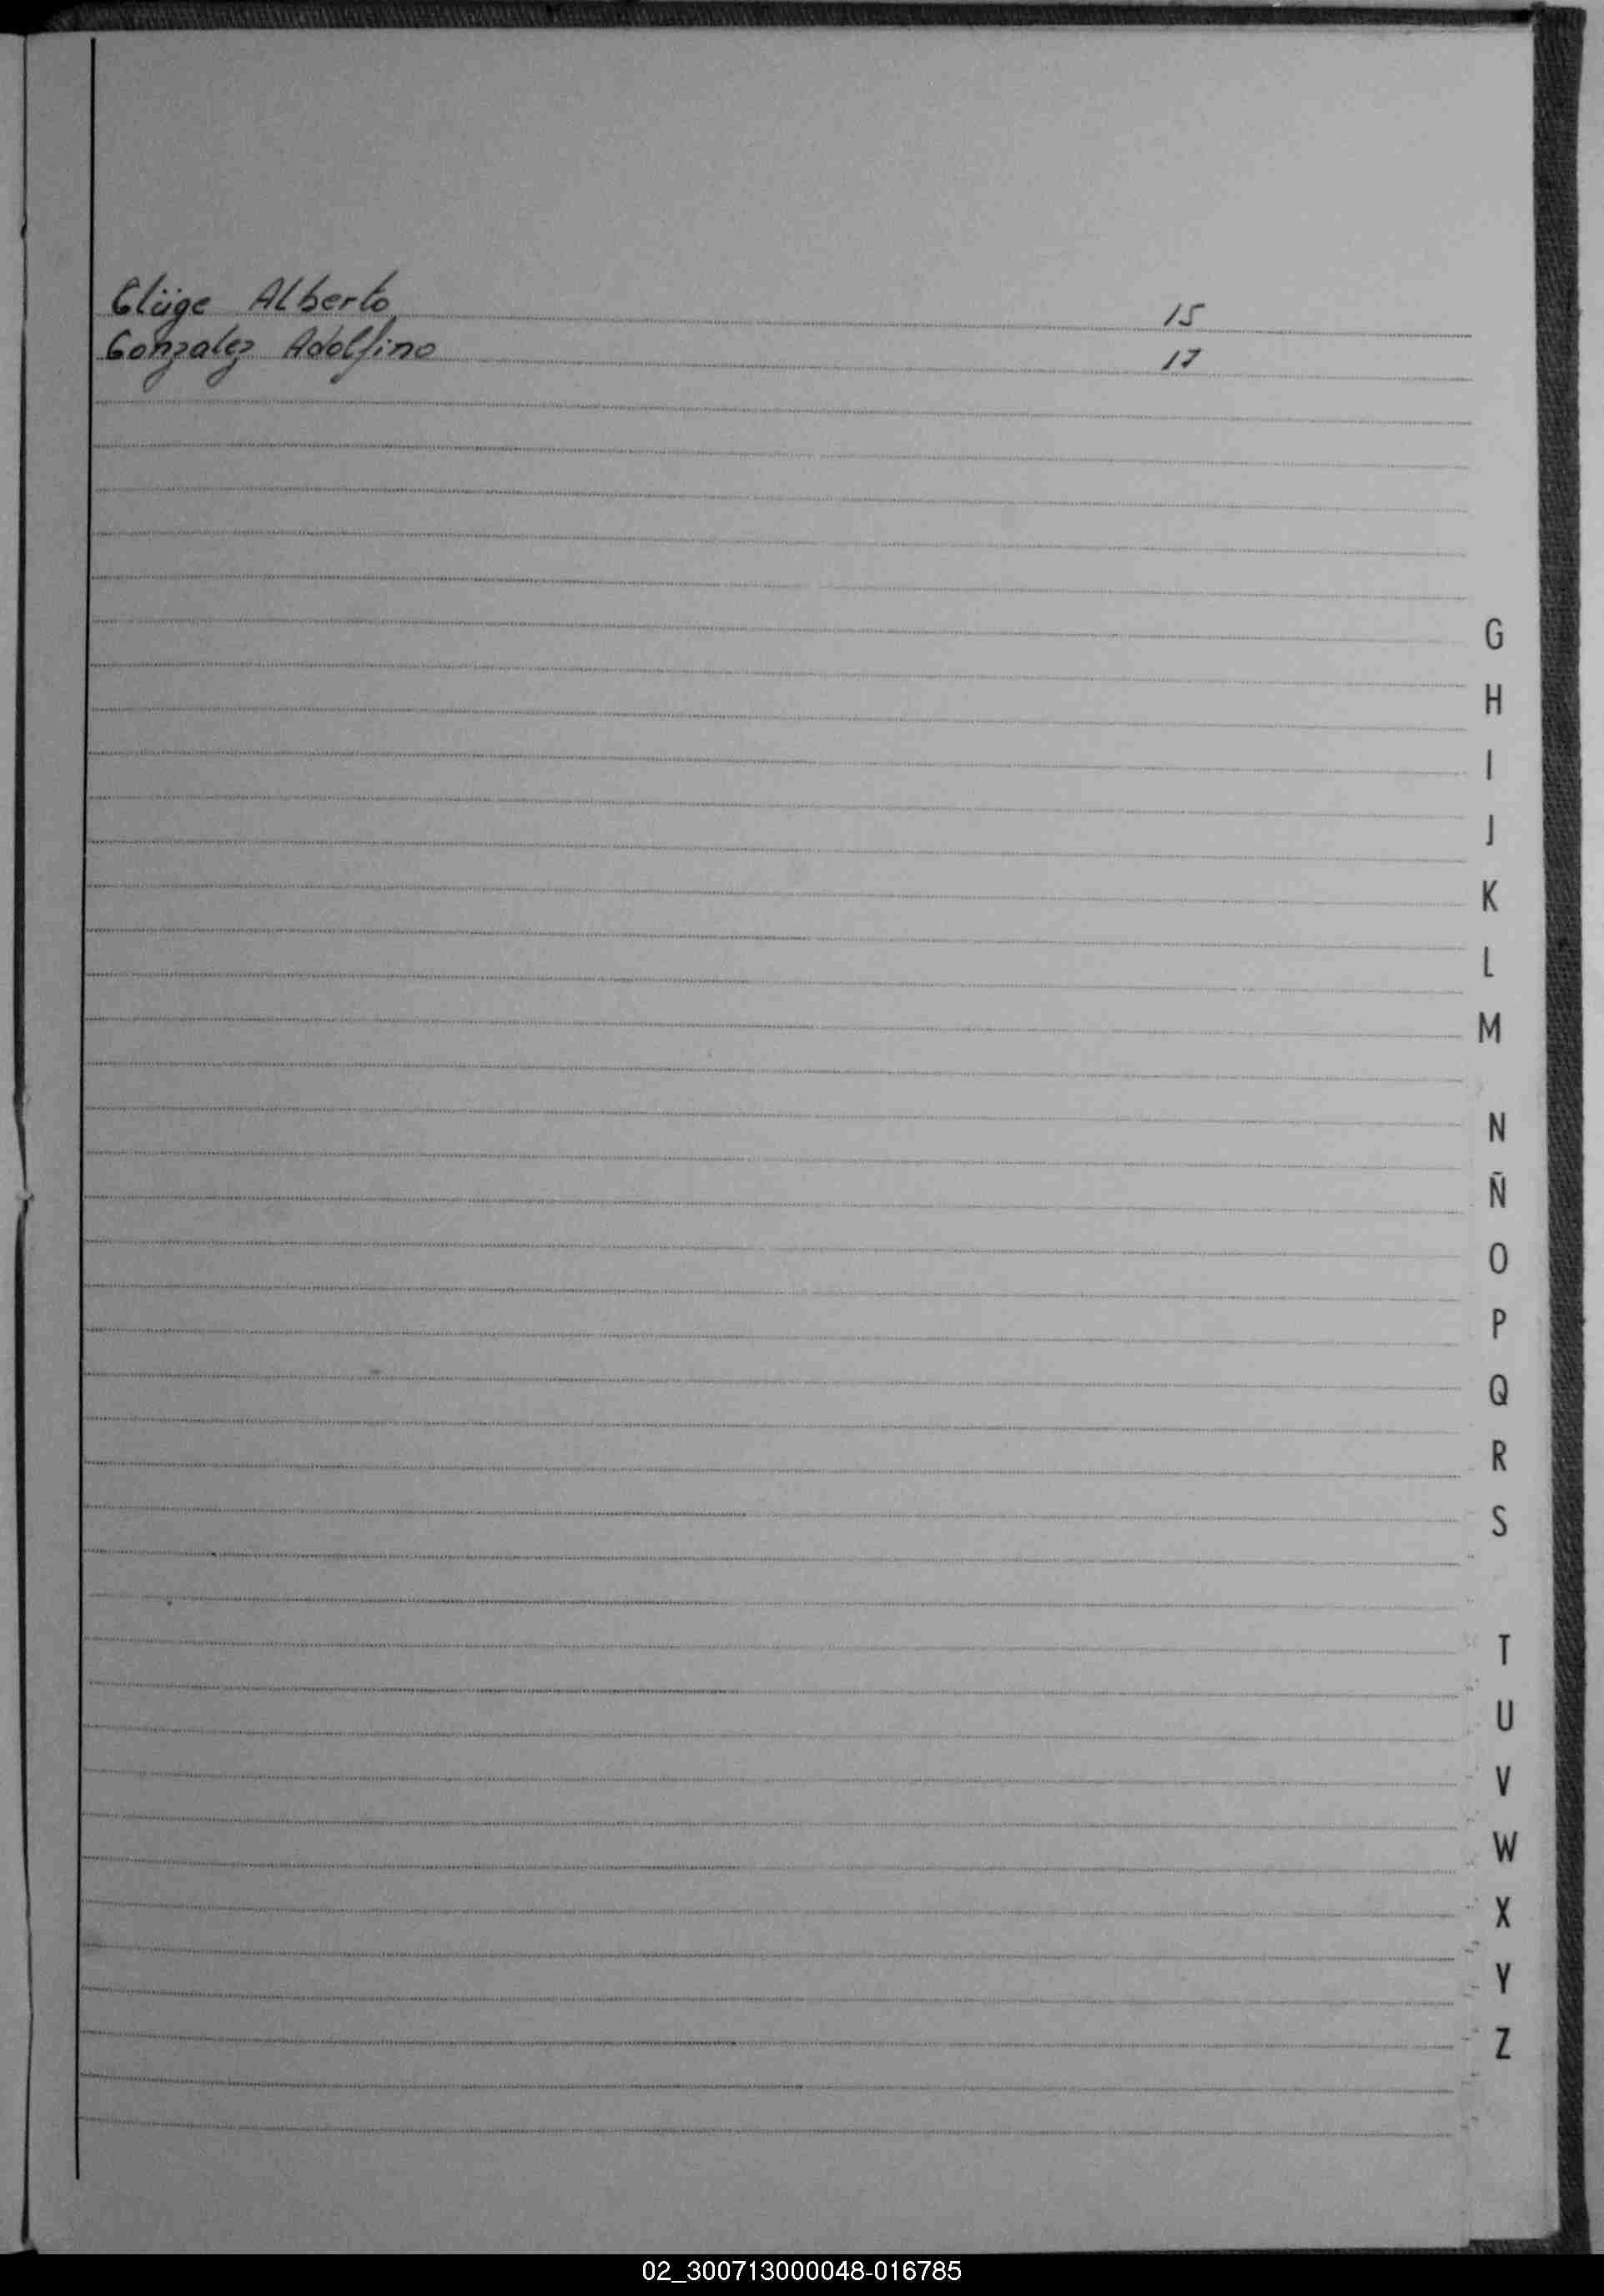 Glüge Alberto 15
Gonzalez Adolfino 17
G
H
I
J
K
L
M
N
Ñ
O
P
Q
R
S
T
U
V
W
X
Y
Z
02_300713000048-016785